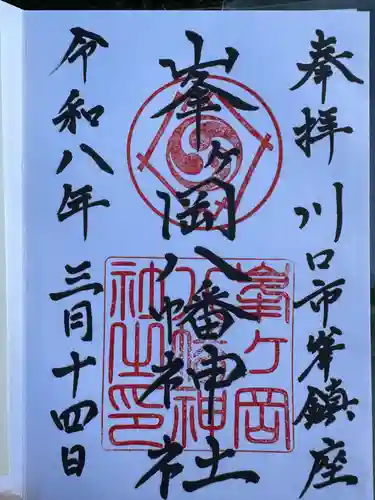 奉拝 川口市峯鎮座
峯ヶ岡八幡神社
令和八年 三月十四日
峯ヶ岡八幡神社之印